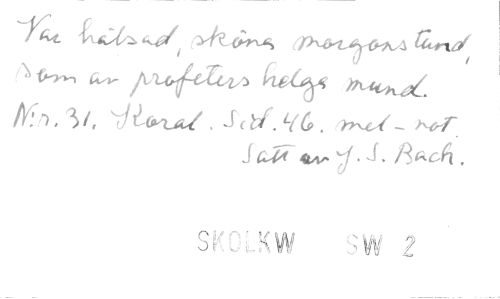 Var hälsad, sköna morgonstund,
som av profeters helga mund.
N:r. 31. Koral. Sid. 46. mel-not.
Satt av J. S. Bach.
SKOLKW SW 2